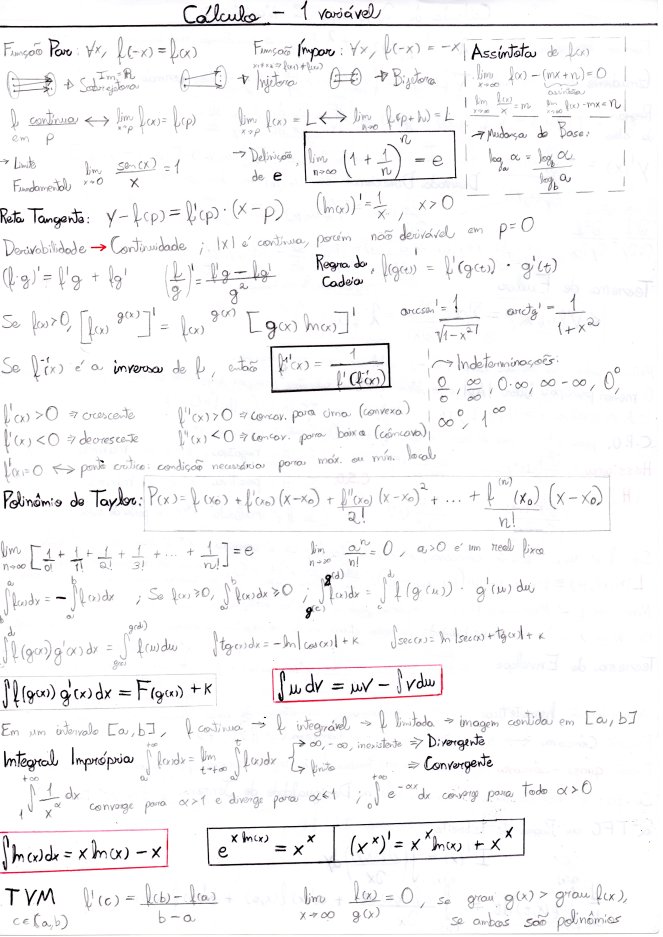 Cálculo - 1 variável
Função Par: ∀x, f(-x) = f(x)
Função Ímpar: ∀x, f(-x) = -x
Assíntota de f(x)
Im = ℝ
⇒ Sobrejetora
x₁ ≠ x₂ ⇒ f(x₁) ≠ f(x₂)
⇒ Injetora
⇒ Bijetora
lim x→∞ f(x) - (mx+n) = 0
assíntota
lim x→∞ f(x)/x = m lim x→∞ f(x) - mx = n
f contínua em p ⟷ lim x→p f(x) = f(p)
lim x→p f(x) = L ⟷ lim h→0 f(p+h) = L
→ Mudança de Base:
log_a α = log_b α / log_b a
→ Limite Fundamental lim x→0 sen(x)/x = 1
→ Definição de e lim n→∞ (1 + 1/n)^n = e
Reta Tangente: y - f(p) = f'(p) · (x - p) (ln(x))' = 1/x, x > 0
Derivabilidade → Continuidade ; |x| é contínua, porém não derivável em p = 0
(f·g)' = f'g + fg' (f/g)' = (f'g - fg')/g² Regra da Cadeia, f(g(t))' = f'(g(t)) · g'(t)
Se f(x) > 0, [f(x)^g(x)]' = f(x)^g(x) [g(x) ln(x)]' arcsen' = 1/√(1-x²) arctg' = 1/(1+x²)
Se f⁻¹(x) é a inversa de f, então f⁻¹'(x) = 1/f'(f⁻¹(x))
→ Indeterminações:
0/0, ∞/∞, 0·∞, ∞-∞, 0⁰,
∞⁰, 1^∞
f'(x) > 0 ⇒ crescente f''(x) > 0 ⇒ concav. para cima (convexa)
f'(x) < 0 ⇒ decrescente f''(x) < 0 ⇒ concav. para baixo (côncava)
f'(x) = 0 ⟷ ponto crítico: condição necessária para máx. ou mín. local
Polinômio de Taylor: P(x) = f(x₀) + f'(x₀)(x-x₀) + f''(x₀)/2! (x-x₀)² + ... + f^(n)(x₀)/n! (x-x₀)
lim n→∞ [1/0! + 1/1! + 1/2! + 1/3! + ... + 1/n!] = e lim n→∞ a^n/n! = 0, a>0 é um real fixo
∫_b^a f(x)dx = -∫_a^b f(x)dx ; Se f(x) ≥ 0, ∫_a^b f(x)dx ≥ 0 ; ∫_g(c)^g(d) f(x)dx = ∫_c^d f(g(u)) · g'(u) du
∫_c^d f(g(x)) g'(x) dx = ∫_g(c)^g(d) f(u)du ∫tg(x)dx = -ln|cos(x)| + k ∫sec(x) = ln|sec(x) + tg(x)| + k
∫f(g(x)) g'(x) dx = F(g(x)) + K
∫u dv = uv - ∫v du
Em um intervalo [a, b], f contínua → f integrável → f limitada → imagem contida em [a, b]
Integral Imprópria ∫_a^+∞ f(x)dx = lim t→+∞ ∫_a^t f(x)dx → ∞, -∞, inexistente ⇒ Divergente
→ finito ⇒ Convergente
∫_1^+∞ 1/x^α dx converge para α > 1 e diverge para α ≤ 1 ; ∫_0^+∞ e^-αx dx converge para todo α > 0
∫ln(x)dx = x ln(x) - x
e^(x ln(x)) = x^x
(x^x)' = x^x ln(x) + x^x
TVM f'(c) = (f(b) - f(a))/(b - a) lim x→∞ f(x)/g(x) = 0, se grau g(x) > grau f(x),
c ∈ (a,b) se ambos são polinômios